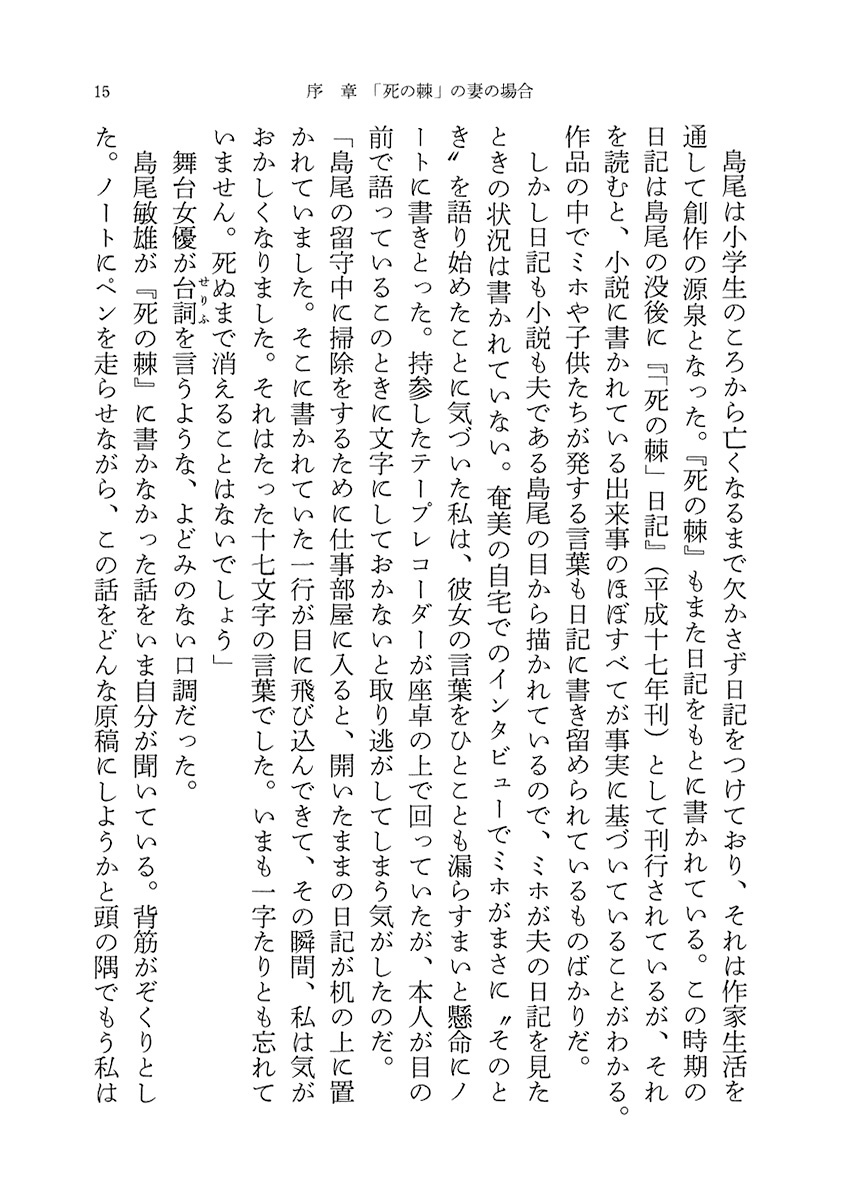 15
序　章　「死の棘」の妻の場合
　島尾は小学生のころから亡くなるまで欠かさず日記をつけており、それは作家生活を
通して創作の源泉となった。『死の棘』もまた日記をもとに書かれている。この時期の
日記は島尾の没後に『「死の棘」日記』（平成十七年刊）として刊行されているが、それ
を読むと、小説に書かれている出来事のほぼすべてが事実に基づいていることがわかる。
作品の中でミホや子供たちが発する言葉も日記に書き留められているものばかりだ。
　しかし日記も小説も夫である島尾の目から描かれているので、ミホが夫の日記を見た
ときの状況は書かれていない。奄美の自宅でのインタビューでミホがまさに〝そのと
き〟を語り始めたことに気づいた私は、彼女の言葉をひとことも漏らすまいと懸命にノ
ートに書きとった。持参したテープレコーダーが座卓の上で回っていたが、本人が目の
前で語っているこのときに文字にしておかないと取り逃がしてしまう気がしたのだ。
「島尾の留守中に掃除をするために仕事部屋に入ると、開いたままの日記が机の上に置
かれていました。そこに書かれていた一行が目に飛び込んできて、その瞬間、私は気が
おかしくなりました。それはたった十七文字の言葉でした。いまも一字たりとも忘れて
いません。死ぬまで消えることはないでしょう」
　舞台女優が台詞せりふを言うような、よどみのない口調だった。
　島尾敏雄が『死の棘』に書かなかった話をいま自分が聞いている。背筋がぞくりとし
た。ノートにペンを走らせながら、この話をどんな原稿にしようかと頭の隅でもう私は